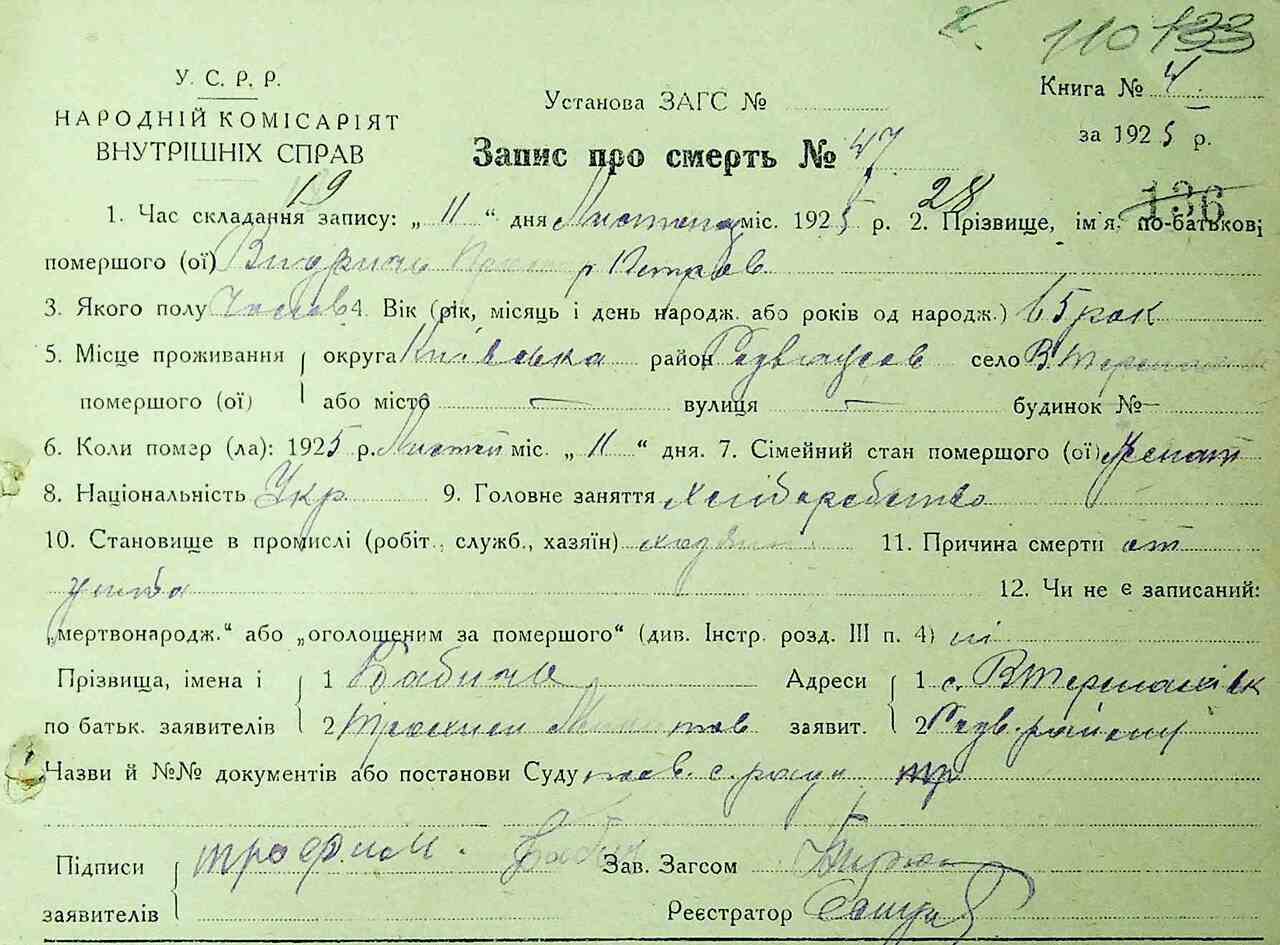 110 133
У. С. Р. Р.
НАРОДНІЙ КОМІСАРІЯТ
ВНУТРІШНІХ СПРАВ
Установа ЗАГС №
Книга № 4
за 1925 р.
Запис про смерть № 47
19 28 136
1. Час складання запису: „ 11 “ дня Листопад міс. 1925 р. 2. Прізвище, ім'я, по-батькові
помершого (ої) Петров
3. Якого полу Чолов 4. Вік (рік, місяць і день народж. або років од народж.) 65 рок
5. Місце проживання округа Київська район село В.
помершого (ої) або місто — вулиця — будинок № —
6. Коли помер (ла): 1925 р. Листоп міс. „ 11 “ дня. 7. Сімейний стан помершого (ої) Женат
8. Національність Укр 9. Головне заняття хліборобство
10. Становище в промислі (робіт., служб., хазяїн) хазяин 11. Причина смерти от
12. Чи не є записаний:
„мертвонародж.“ або „оголошеним за помершого“ (див. Інстр. розд. III п. 4) ні
Прізвища, імена і 1 Адреси 1 с.
по батьк. заявителів 2 заявит. 2 Радв. району
Назви й №№ документів або постанови Суду с. ради
Підписи трофим Зав. Загсом
заявителів Реєстратор